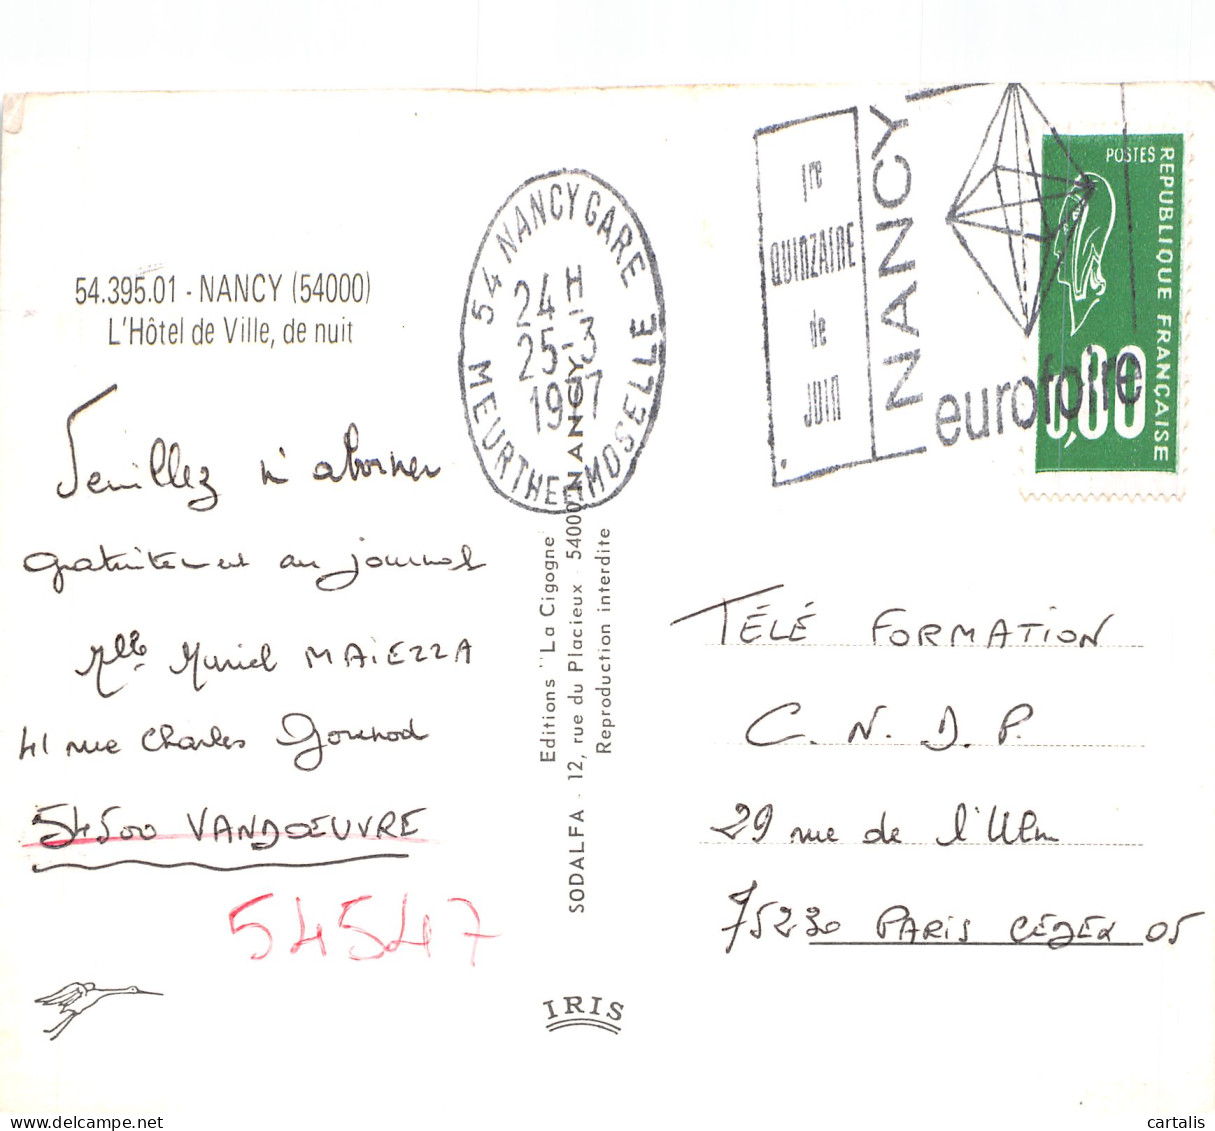 54.395.01 - NANCY (54000)
L'Hôtel de Ville, de nuit
Veuillez m'abonner
gratuitement au journal
Mlle Muriel MAIEZZA
41 rue Charles Gounod
54500 VANDOEUVRE
54547
54 NANCY GARE
24 H
25-3
MEURTHE ET MOSELLE
Editions "La Cigogne"
SODALFA - 12, rue du Placieux - 54000 NANCY
Reproduction interdite
IRIS
1re
QUINZAINE
de
JUIN
NANCY
eurofoire
POSTES
REPUBLIQUE FRANÇAISE
TÉLÉ FORMATION
C. N. D. P.
29 rue de l'Ulm
75230 PARIS CÉDEX 05
cartalis